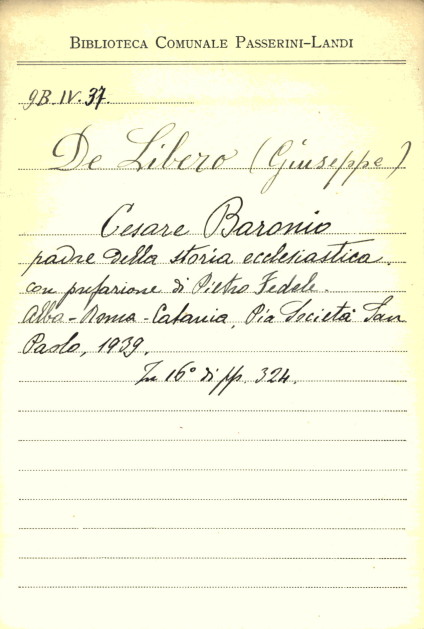 BIBLIOTECA COMUNALE PASSERINI-LANDI
9B.IV.37.
De Libero (Giuseppe)
Cesare Baronio
padre della storia ecclesiastica.
con prefazione di Pietro Fedele.
Alba-Roma-Catania, Pia Società San
Paolo, 1939.
In 16° di pp. 324.